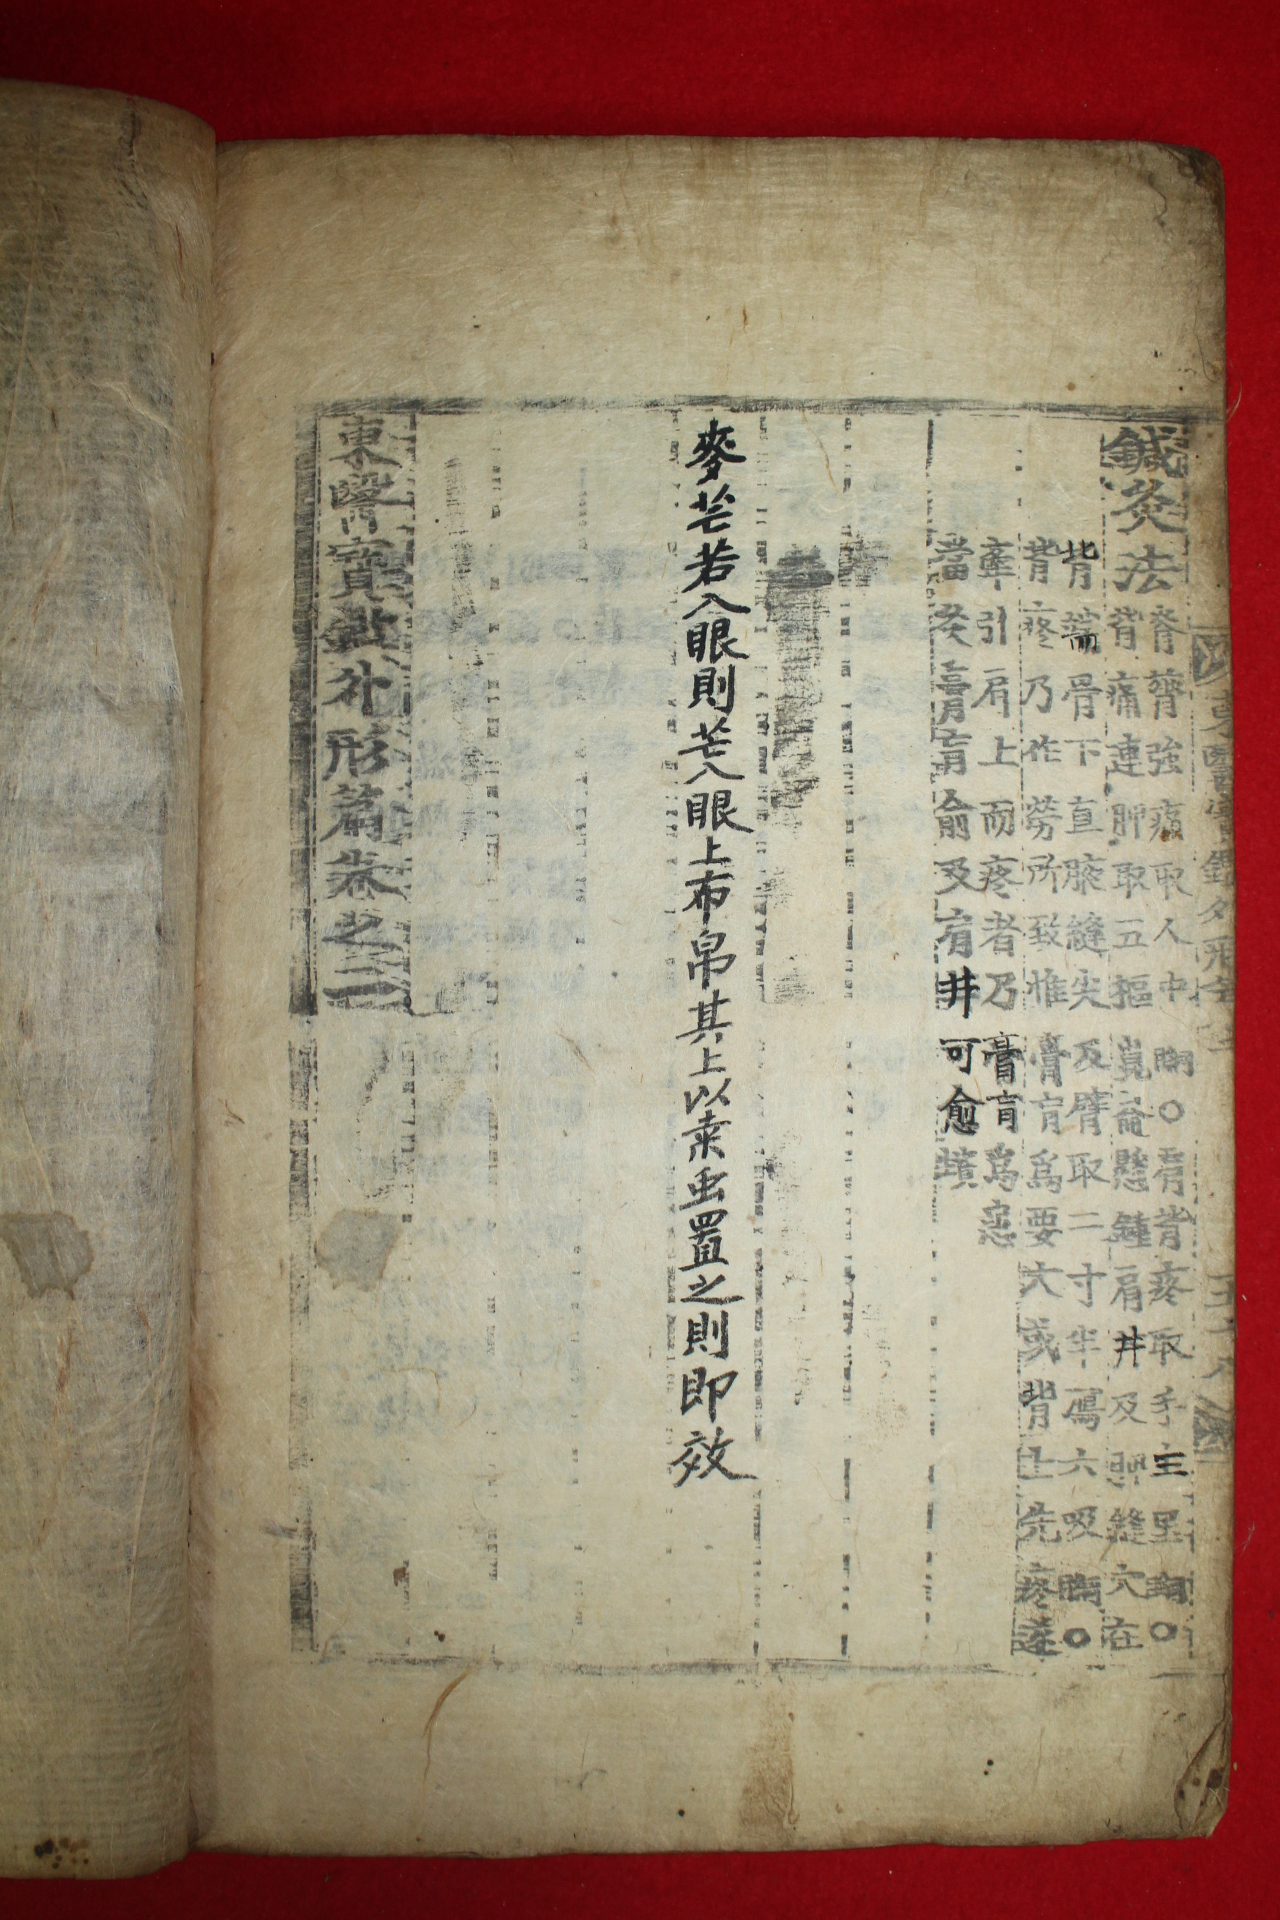 東醫寶鑑外形
鍼灸法
脊膂強痛取人中綱○肩背疼取手三里綱○
背痛連胛取五樞崑崙懸鍾肩井及胛縫穴在
背端骨下直腋縫尖及臂取二寸半瀉六吸綱○
背疼乃作勞所致惟膏肓爲要穴或背上先疼遂
牽引肩上而疼者乃膏肓爲患
當灸膏肓兪及肩井可愈
麥芒若入眼則芒入眼上布帛其上以桒虫置之則即效
東醫寶鑑外形篇卷之三